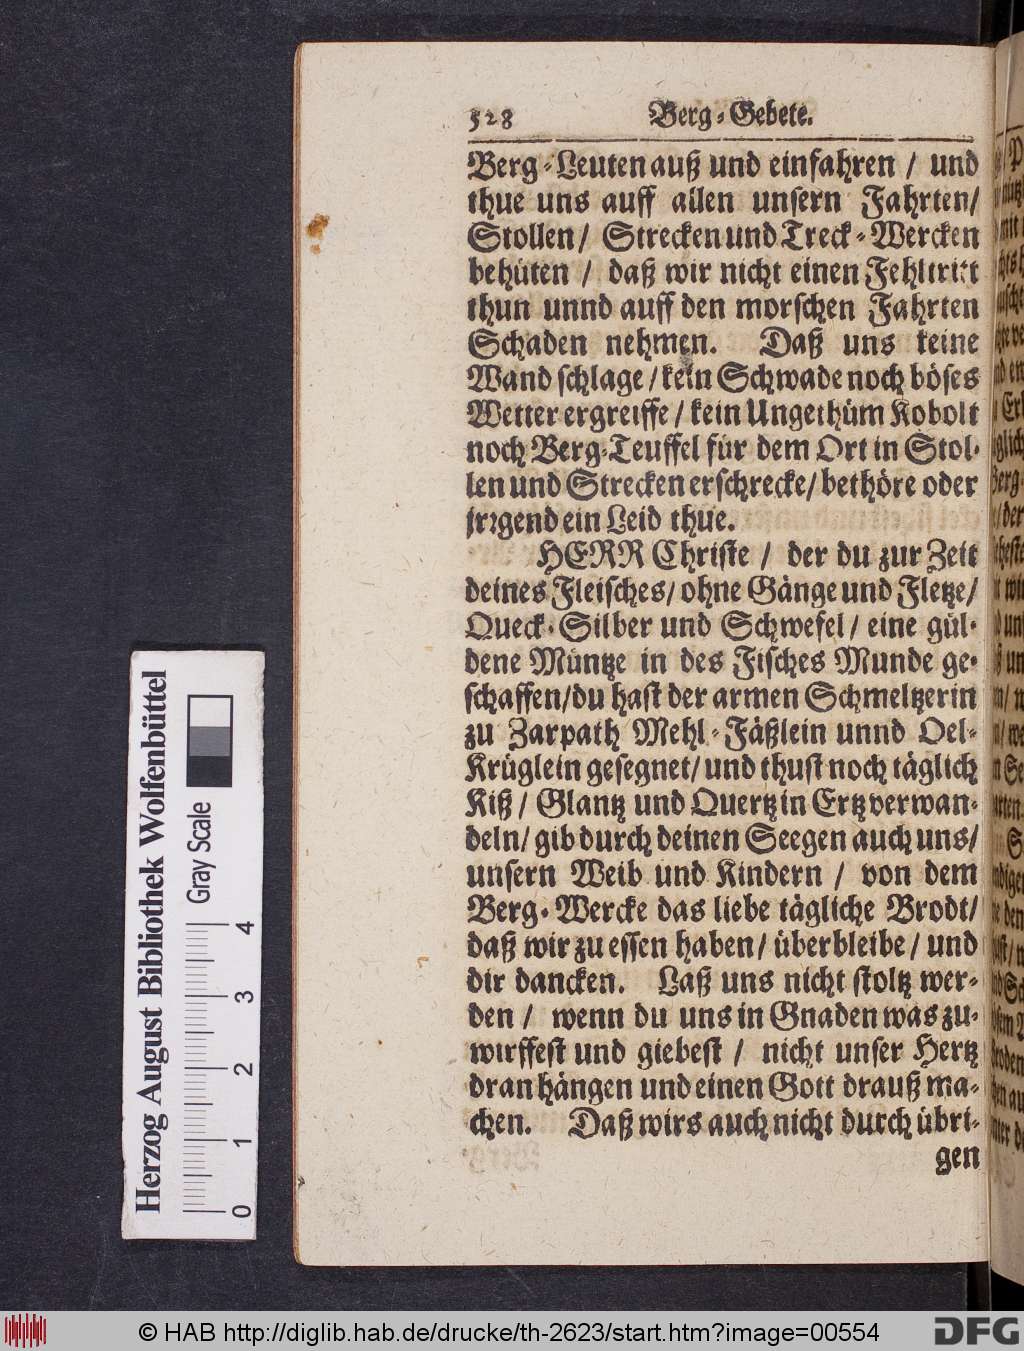 528 Berg-Gebete.
Berg-Leuten auß und einfahren / und
thue uns auff allen unsern Fahrten/
Stollen/ Strecken und Treck-Wercken
behüten / daß wir nicht einen Fehltritt
thun unnd auff den morschen Fahrten
Schaden nehmen. Daß uns keine
Wand schlage/kein Schwade noch böses
Wetter ergreiffe/kein Ungethüm Kobolt
noch Berg-Teuffel für dem Ort in Stol-
len und Strecken erschrecke/bethöre oder
jrrgend ein Leid thue.
HERR Christe / der du zur Zeit
deines Fleisches/ohne Gänge und Fletze/
Queck-Silber und Schwefel/ eine gül-
dene Müntze in des Fisches Munde ge-
schaffen/du hast der armen Schmeltzerin
zu Zarpath Mehl-Fäßlein unnd Oel-
Krüglein gesegnet/und thust noch täglich
Kiß/ Glantz und Quertz in Ertz verwan-
deln/gib durch deinen Seegen auch uns/
unsern Weib und Kindern / von dem
Berg-Wercke das liebe tägliche Brodt/
daß wir zu essen haben/überbleibe/ und
dir dancken. Laß uns nicht stoltz wer-
den / wenn du uns in Gnaden was zu-
wirffest und giebest / nicht unser Hertz
dran hängen und einen Gott drauß ma-
chen. Daß wirs auch nicht durch übri-
gen
Herzog August Bibliothek Wolfenbüttel
Gray Scale
0 1 2 3 4
© HAB http://diglib.hab.de/drucke/th-2623/start.htm?image=00554
DFG